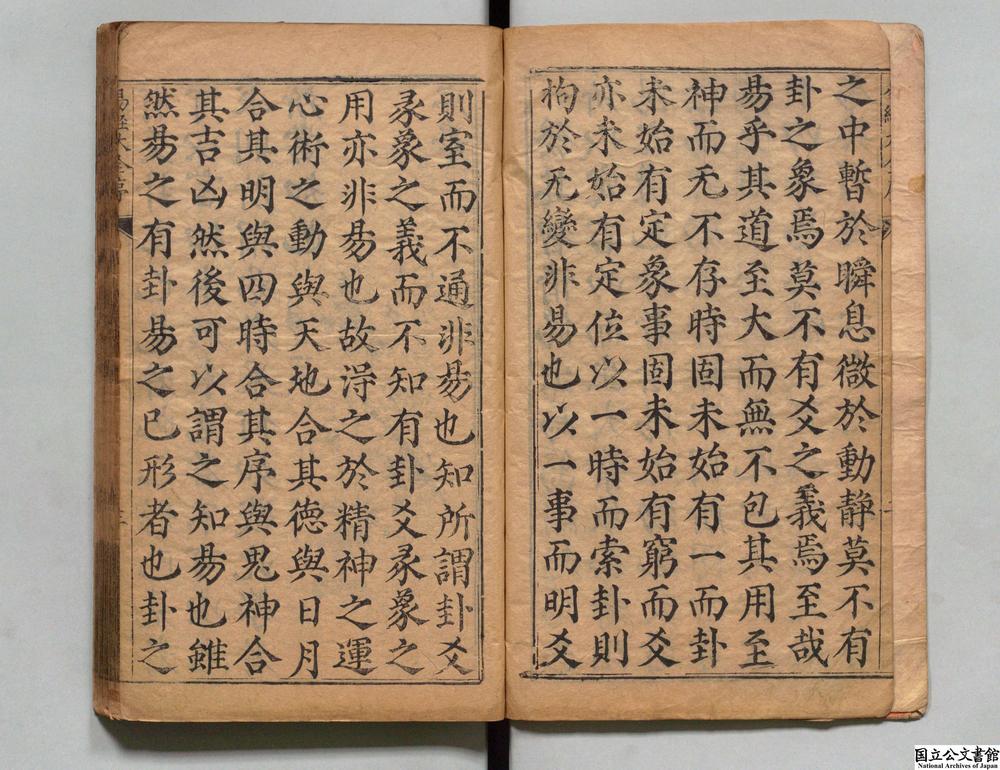 之中暫於瞬息微於動静莫不有
卦之象焉莫不有爻之義焉至哉
易乎其道至大而無不包其用至
神而无不存時固未始有一而卦
未始有定象事固未始有窮而爻
亦未始有定位以一時而索卦則
拘於无變非易也以一事而明爻
則窒而不通非易也知所謂卦爻
彖象之義而不知有卦爻彖象之
用亦非易也故淂之於精神之運
心術之動與天地合其德與日月
合其明與四時合其序與鬼神合
其吉凶然後可以謂之知易也雖
然易之有卦易之已形者也卦之
易經大全序
国立公文書館
National Archives of Japan